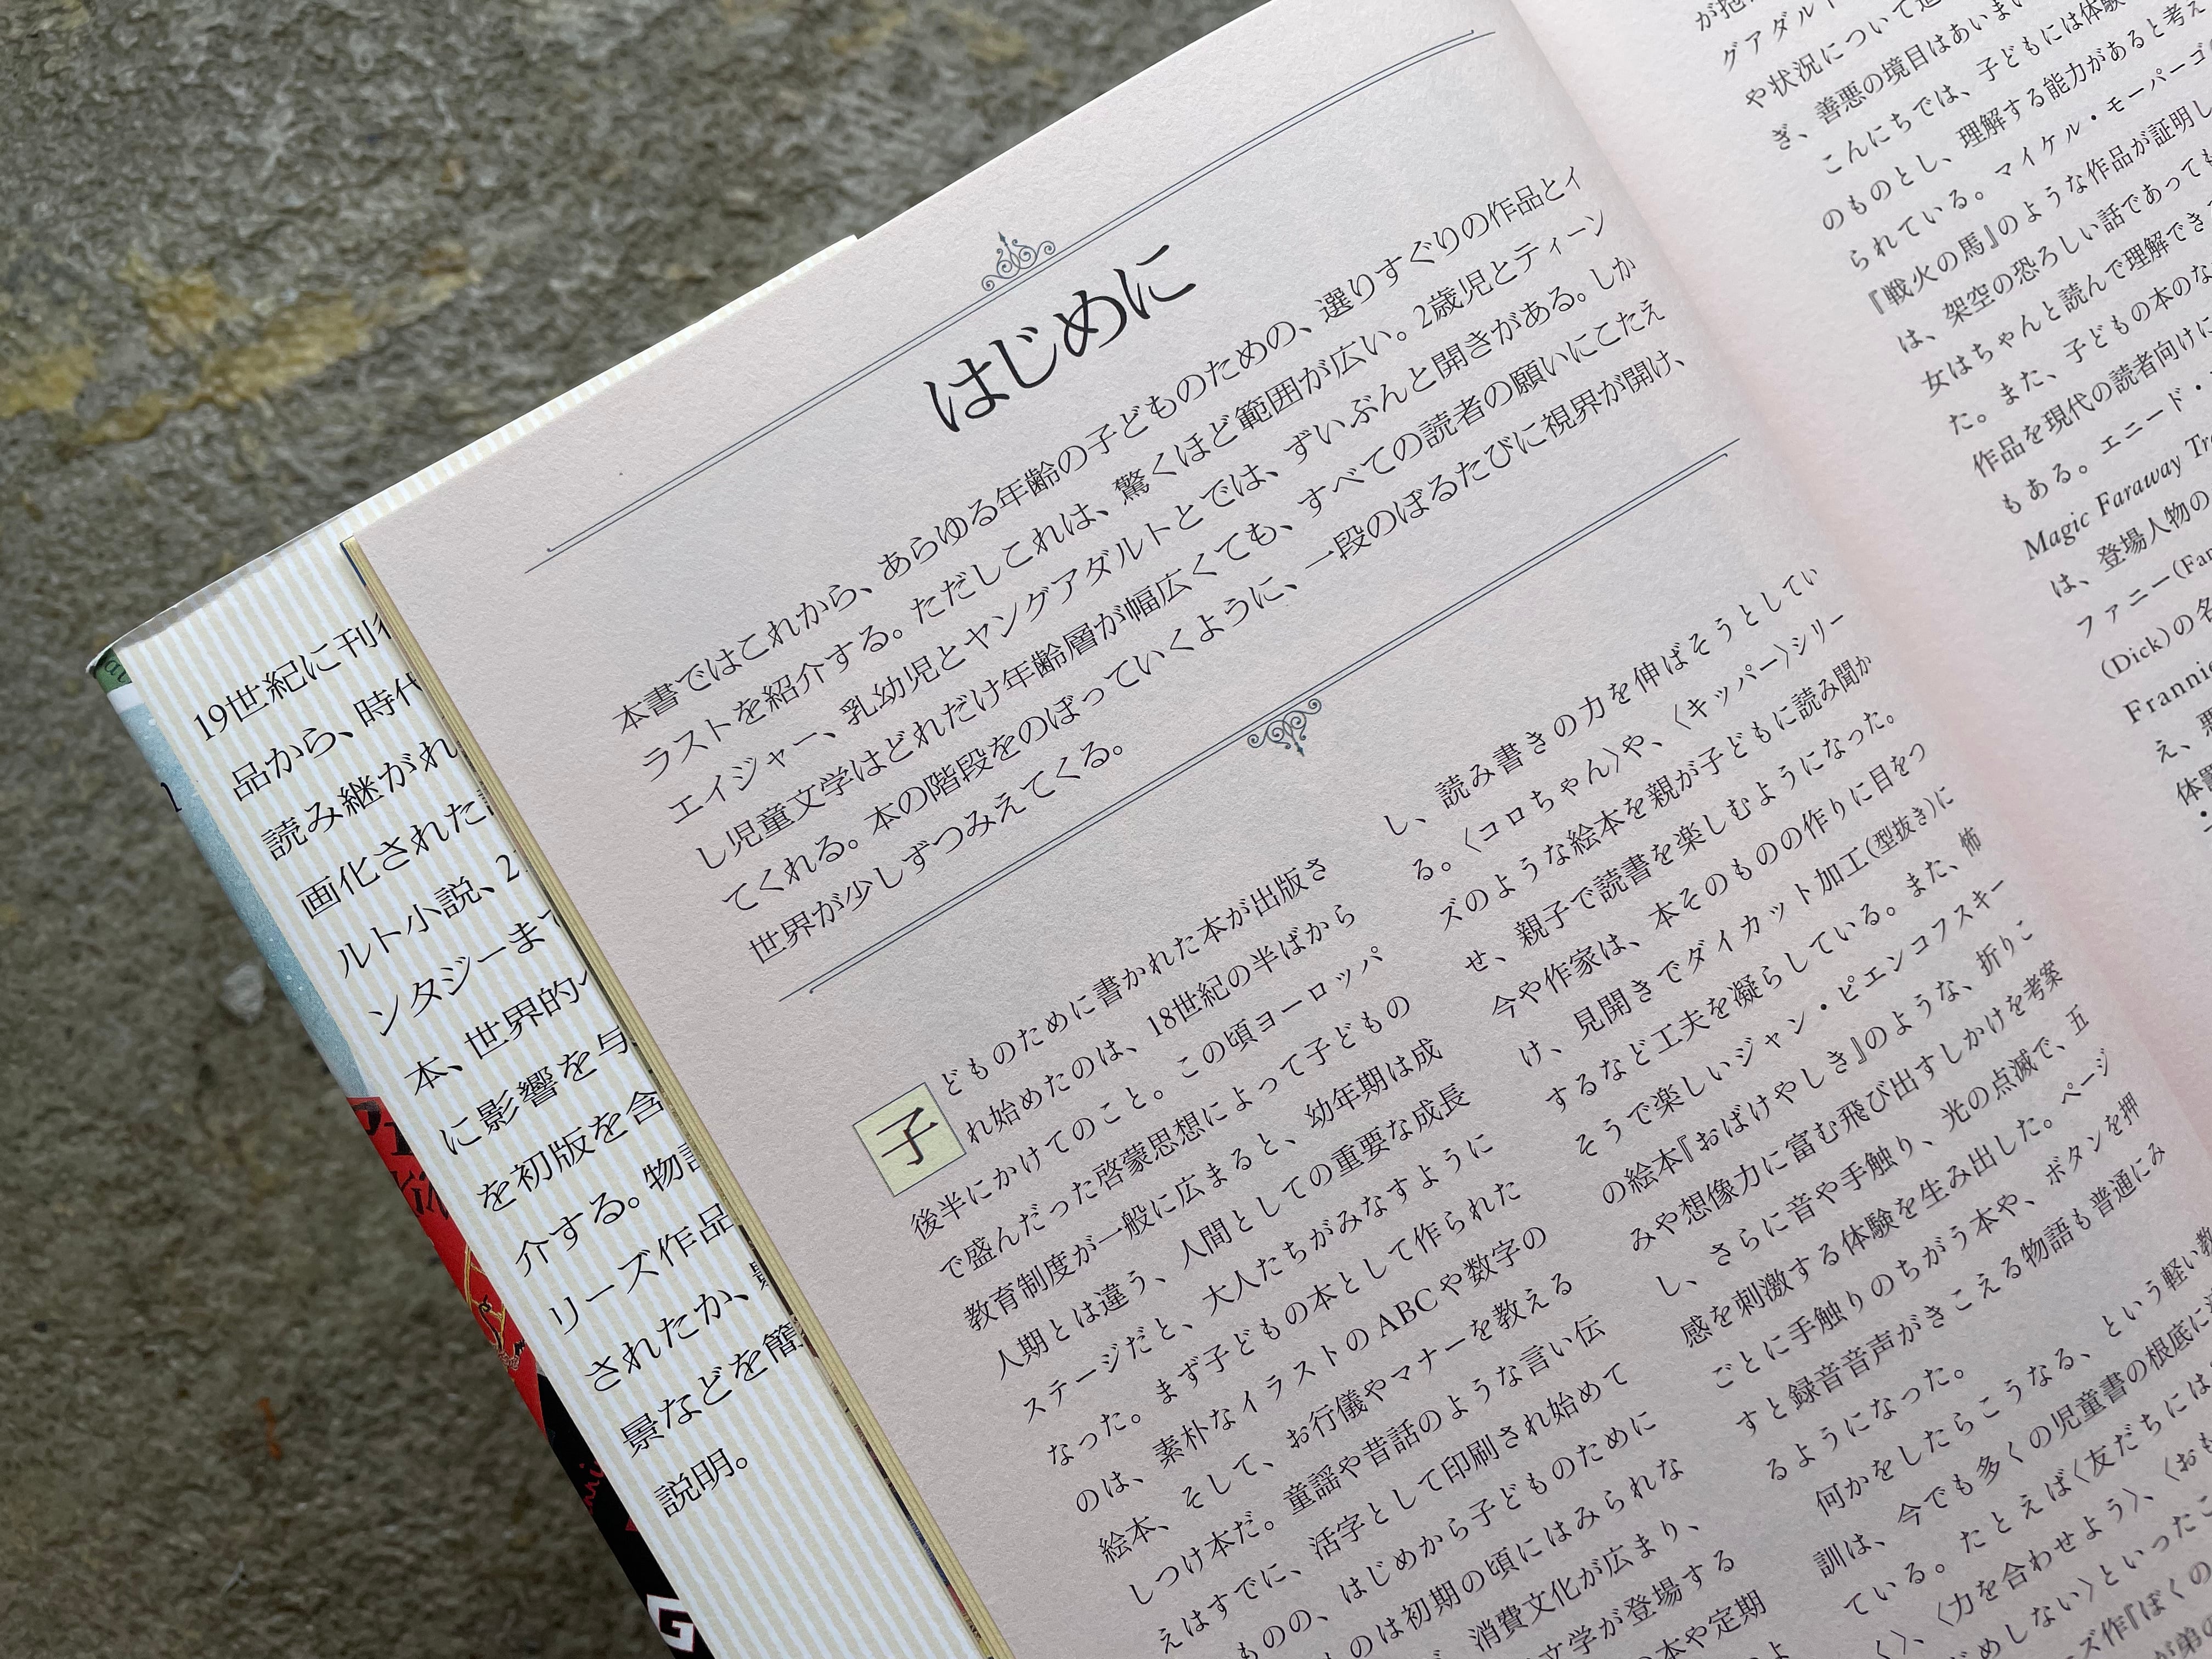 はじめに
本書ではこれから、あらゆる年齢の子どものための、選りすぐりの作品とイ
ラストを紹介する。ただしこれは、驚くほど範囲が広い。2歳児とティーン
エイジャー、乳幼児とヤングアダルトとでは、ずいぶんと開きがある。しか
し児童文学はどれだけ年齢層が幅広くても、すべての読者の願いにこたえ
てくれる。本の階段をのぼっていくように、一段のぼるたびに視界が開け、
世界が少しずつみえてくる。
子どものために書かれた本が出版さ
れ始めたのは、18世紀の半ばから
後半にかけてのこと。この頃ヨーロッパ
で盛んだった啓蒙思想によって子どもの
教育制度が一般に広まると、幼年期は成
人期とは違う、人間としての重要な成長
ステージだと、大人たちがみなすように
なった。まず子どもの本として作られた
のは、素朴なイラストのABCや数字の
絵本、そして、お行儀やマナーを教える
しつけ本だ。童謡や昔話のような言い伝
えはすでに、活字として印刷され始めて
ものの、はじめから子どものために
のは初期の頃にはみられな
消費文化が広まり、
文学が登場する
本や定期
し、読み書きの力を伸ばそうとしてい
る。〈コロちゃん〉や、〈キッパー〉シリー
ズのような絵本を親が子どもに読み聞か
せ、親子で読書を楽しむようになった。
今や作家は、本そのものの作りに目をつ
け、見開きでダイカット加工(型抜き)に
するなど工夫を凝らしている。また、怖
そうで楽しいジャン・ピエンコフスキー
の絵本『おばけやしき』のような、折りこ
みや想像力に富む飛び出すしかけを考案
し、さらに音や手触り、光の点滅で、五
感を刺激する体験を生み出した。ページ
ごとに手触りのちがう本や、ボタンを押
すと録音音声がきこえる物語も普通にみ
るようになった。
何かをしたらこうなる、という軽い教
訓は、今でも多くの児童書の根底に
ている。たとえば〈友だちには
く〉、〈力を合わせよう〉、〈おも
じめしない〉といったこ
ズ作『ぼくの
が弟の
グアダルト
や状況について
ぎ、善悪の境目はあいまい
こんにちでは、子どもには体験
のものとし、理解する能力があると考え
られている。マイケル・モーパーゴ
『戦火の馬』のような作品が証明し
は、架空の恐ろしい話であっても
女はちゃんと読んで理解でき
た。また、子どもの本のな
作品を現代の読者向けに
もある。エニード・
Magic Faraway Tr
は、登場人物の
ファニー(Fan
(Dick)の名
Frannie
え、
体罰
19世紀に刊行
品から、時代
読み継がれ
画化された
ルト小説、2
ンタジーまで
本、世界的
に影響を与
を初版を含
介する。物語
リーズ作品
されたか、
景などを簡
説明。
G